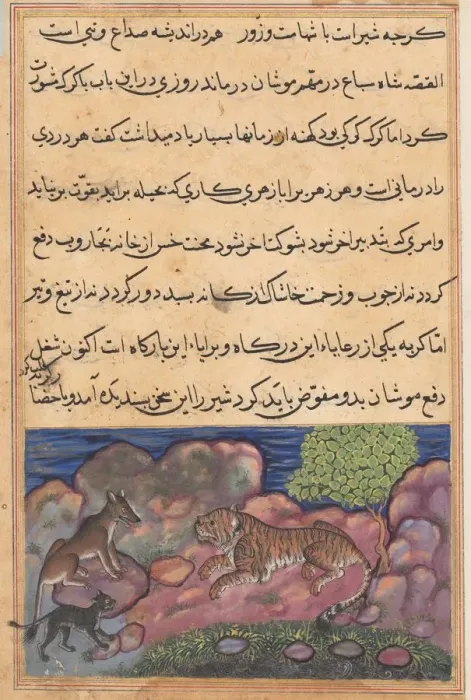 کرچه شیر است با شهامت و زور هم در اندیشهٔ صداع و تبی است
القصه شاه سباع در مهم موشان درماند روزی در این باب با کرک مشورت
کرد اما کرک کرکی بود کهنه از زمانها بسیار یاد میداشت کفت هر دردی
را درمانی است و هر زهر را هر کاری که بحیله براید بقوت برنیاید
وامری که بتدبیر اخر شود بشوکت اخر نشود محنت خس از خانه بجاروب دفع
کردد نه از چوب و زحمت خاشاک از کانه بسبد دور کردد نه از تیغ و تبر
اما کربه یکی از رعایاء این درکاه و برایاء این بارکاه است اکنون شغل
دفع موشان بدو مفوض باید کرد شیر را این سخن پسندیده آمد و باحضا